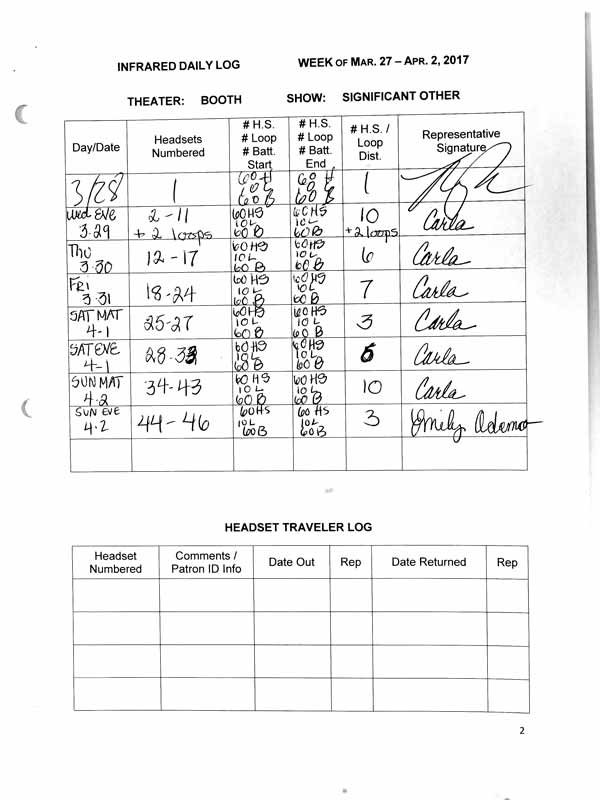 INFRARED DAILY LOG WEEK OF MAR. 27 – APR. 2, 2017
THEATER: BOOTH SHOW: SIGNIFICANT OTHER
Day/Date Headsets Numbered # H.S. # Loop # Batt. Start # H.S. # Loop # Batt. End # H.S. / Loop Dist. Representative Signature
3/28 1 60 H 60 B 60 H 60 B 1
Wed EVE 3.29 2-11 + 2 loops 60HS 10L 60B 60HS 10L 60B 10 +2 loops Carla
Thu 3.30 12-17 60HS 10L 60B 60HS 10L 60B 6 Carla
FRI 3.31 18-24 60HS 10L 60B 60HS 10L 60B 7 Carla
SAT MAT 4-1 25-27 60HS 10L 60B 60HS 10L 60B 3 Carla
SAT EVE 4-1 28-33 60HS 10L 60B 60HS 10L 60B Carla
SUN MAT 4.2 34-43 60HS 10L 60B 60HS 10L 60B 10 Carla
SUN EVE 4.2 44-46 60HS 10L 60B 60HS 10L 60B 3 Emily
HEADSET TRAVELER LOG
Headset Numbered Comments / Patron ID Info Date Out Rep Date Returned Rep
2